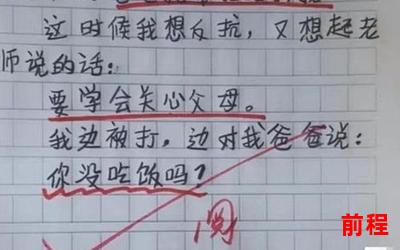 这时候我想反抗，又想起老
师说的话：
要学会关心父母。
我边被打，边对我爸爸说：
你没吃饭吗？
阅
前程